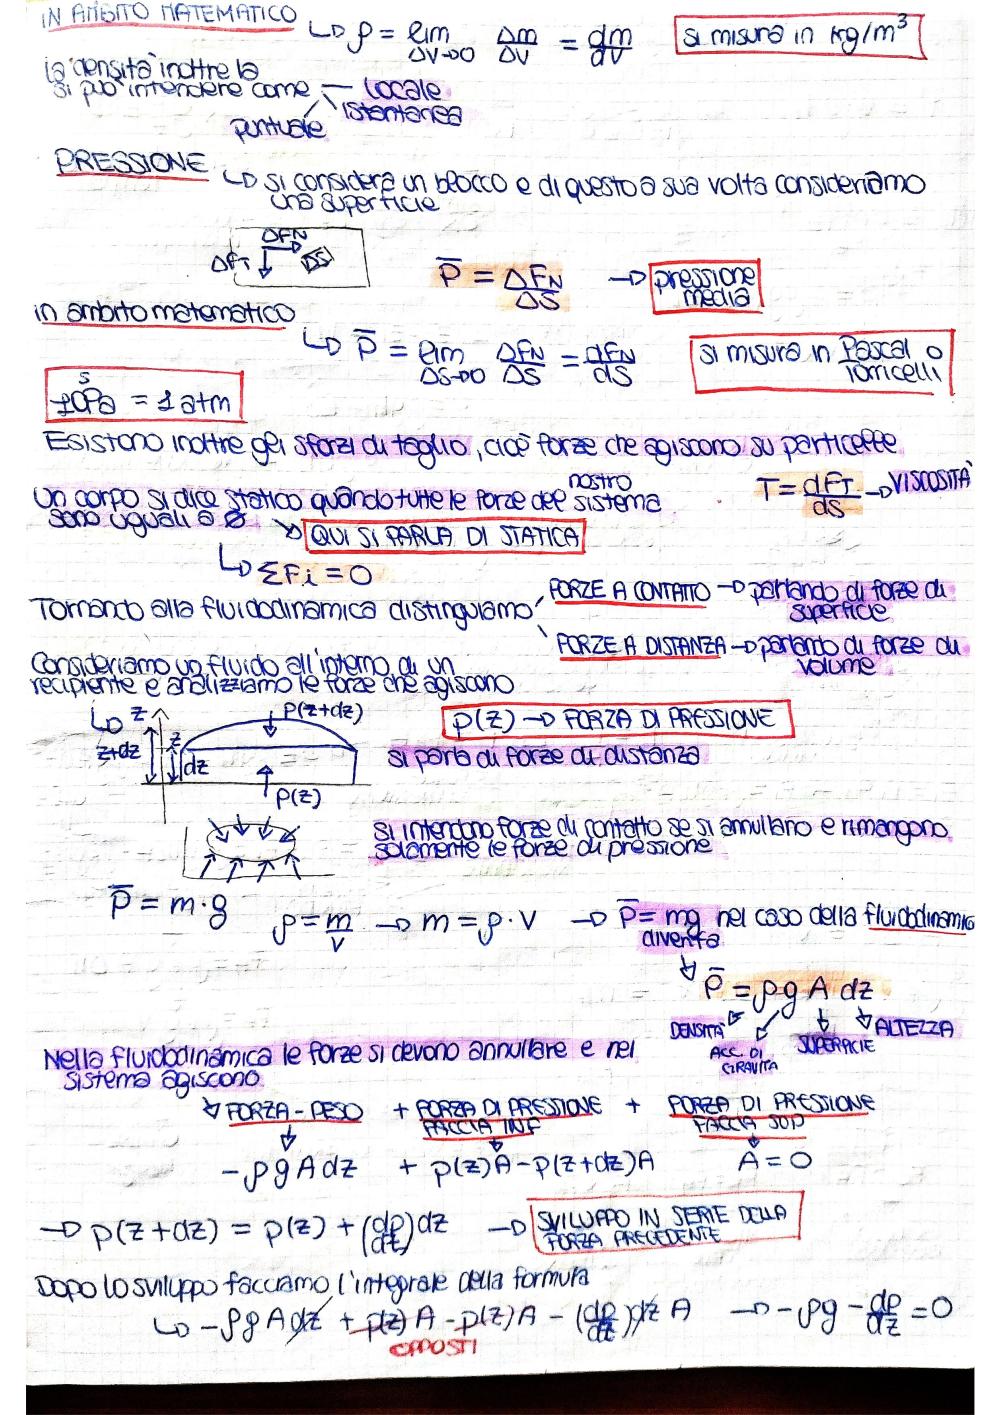 IN AMBITO MATEMATICO
↳ ρ = lim ΔV→0 Δm/ΔV = dm/dV
si misura in kg/m³
la densità inoltre la
si può intendere come — locale
istantanea
puntuale
PRESSIONE
↳ si considera un blocco e di questo a sua volta consideriamo
una superficie
ΔFN
ΔFT ↓ ΔS
P̅ = ΔFN/ΔS → pressione
media
in ambito matematico
↳ P̅ = lim ΔS→0 ΔFN/ΔS = dFN/dS
si misura in Pascal o
Torricelli
10⁵Pa = 1 atm
Esistono inoltre gli sforzi di taglio, cioè forze che agiscono su particelle
T = dFT/ds → VISCOSITÀ
nostro
Un corpo si dice statico quando tutte le forze del sistema
sono uguali a 0
↘ QUI SI PARLA DI STATICA
↳ ΣFi = 0
Tornando alla fluidodinamica distinguiamo
FORZE A CONTATTO → parlando di forze di
superficie
FORZE A DISTANZA → parlando di forze di
volume
Consideriamo un fluido all'interno di un
recipiente e analizziamo le forze che agiscono
↳ z
P(z+dz)
z+dz
z
dz
P(z)
p(z) → FORZA DI PRESSIONE
si parla di forze di distanza
si intendono forze di contatto se si annullano e rimangono
solamente le forze di pressione
P̅ = m·g
ρ = m/v → m = ρ·V → P̅ = mg nel caso della fluidodinamica
diventa
↓ P̅ = ρgA dz
DENSITÀ
ACC. DI
GRAVITÀ
SUPERFICIE
ALTEZZA
Nella fluidodinamica le forze si devono annullare e nel
sistema agiscono
↓ FORZA-PESO + FORZA DI PRESSIONE + FORZA DI PRESSIONE
FACCIA INF
FACCIA SUP
-ρgAdz + p(z)A - p(z+dz)A
A = 0
→ p(z+dz) = p(z) + (dp/dz)dz → SVILUPPO IN SERIE DELLA
FORZA PRECEDENTE
Dopo lo sviluppo facciamo l'integrale della formula
↳ -ρgAdz + p(z)A - p(z)A - (dp/dz)dz A → -ρg - dp/dz = 0
OPPOSTI